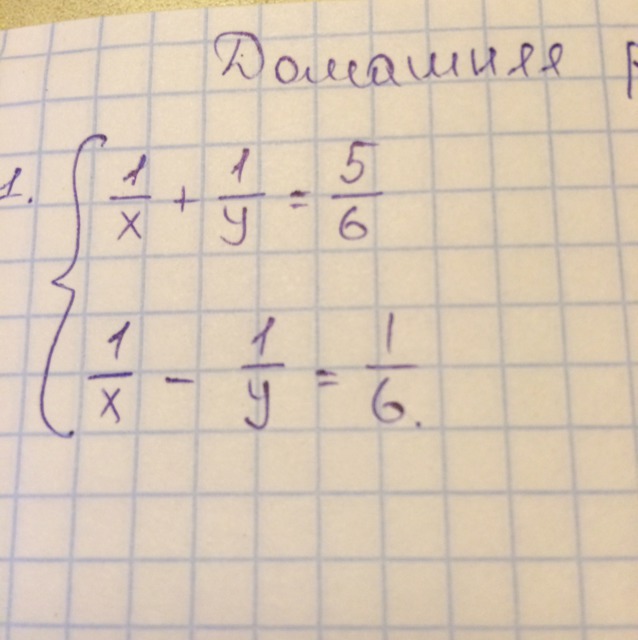 Домашняя
1. { 1/x + 1/y = 5/6
1/x - 1/y = 1/6.